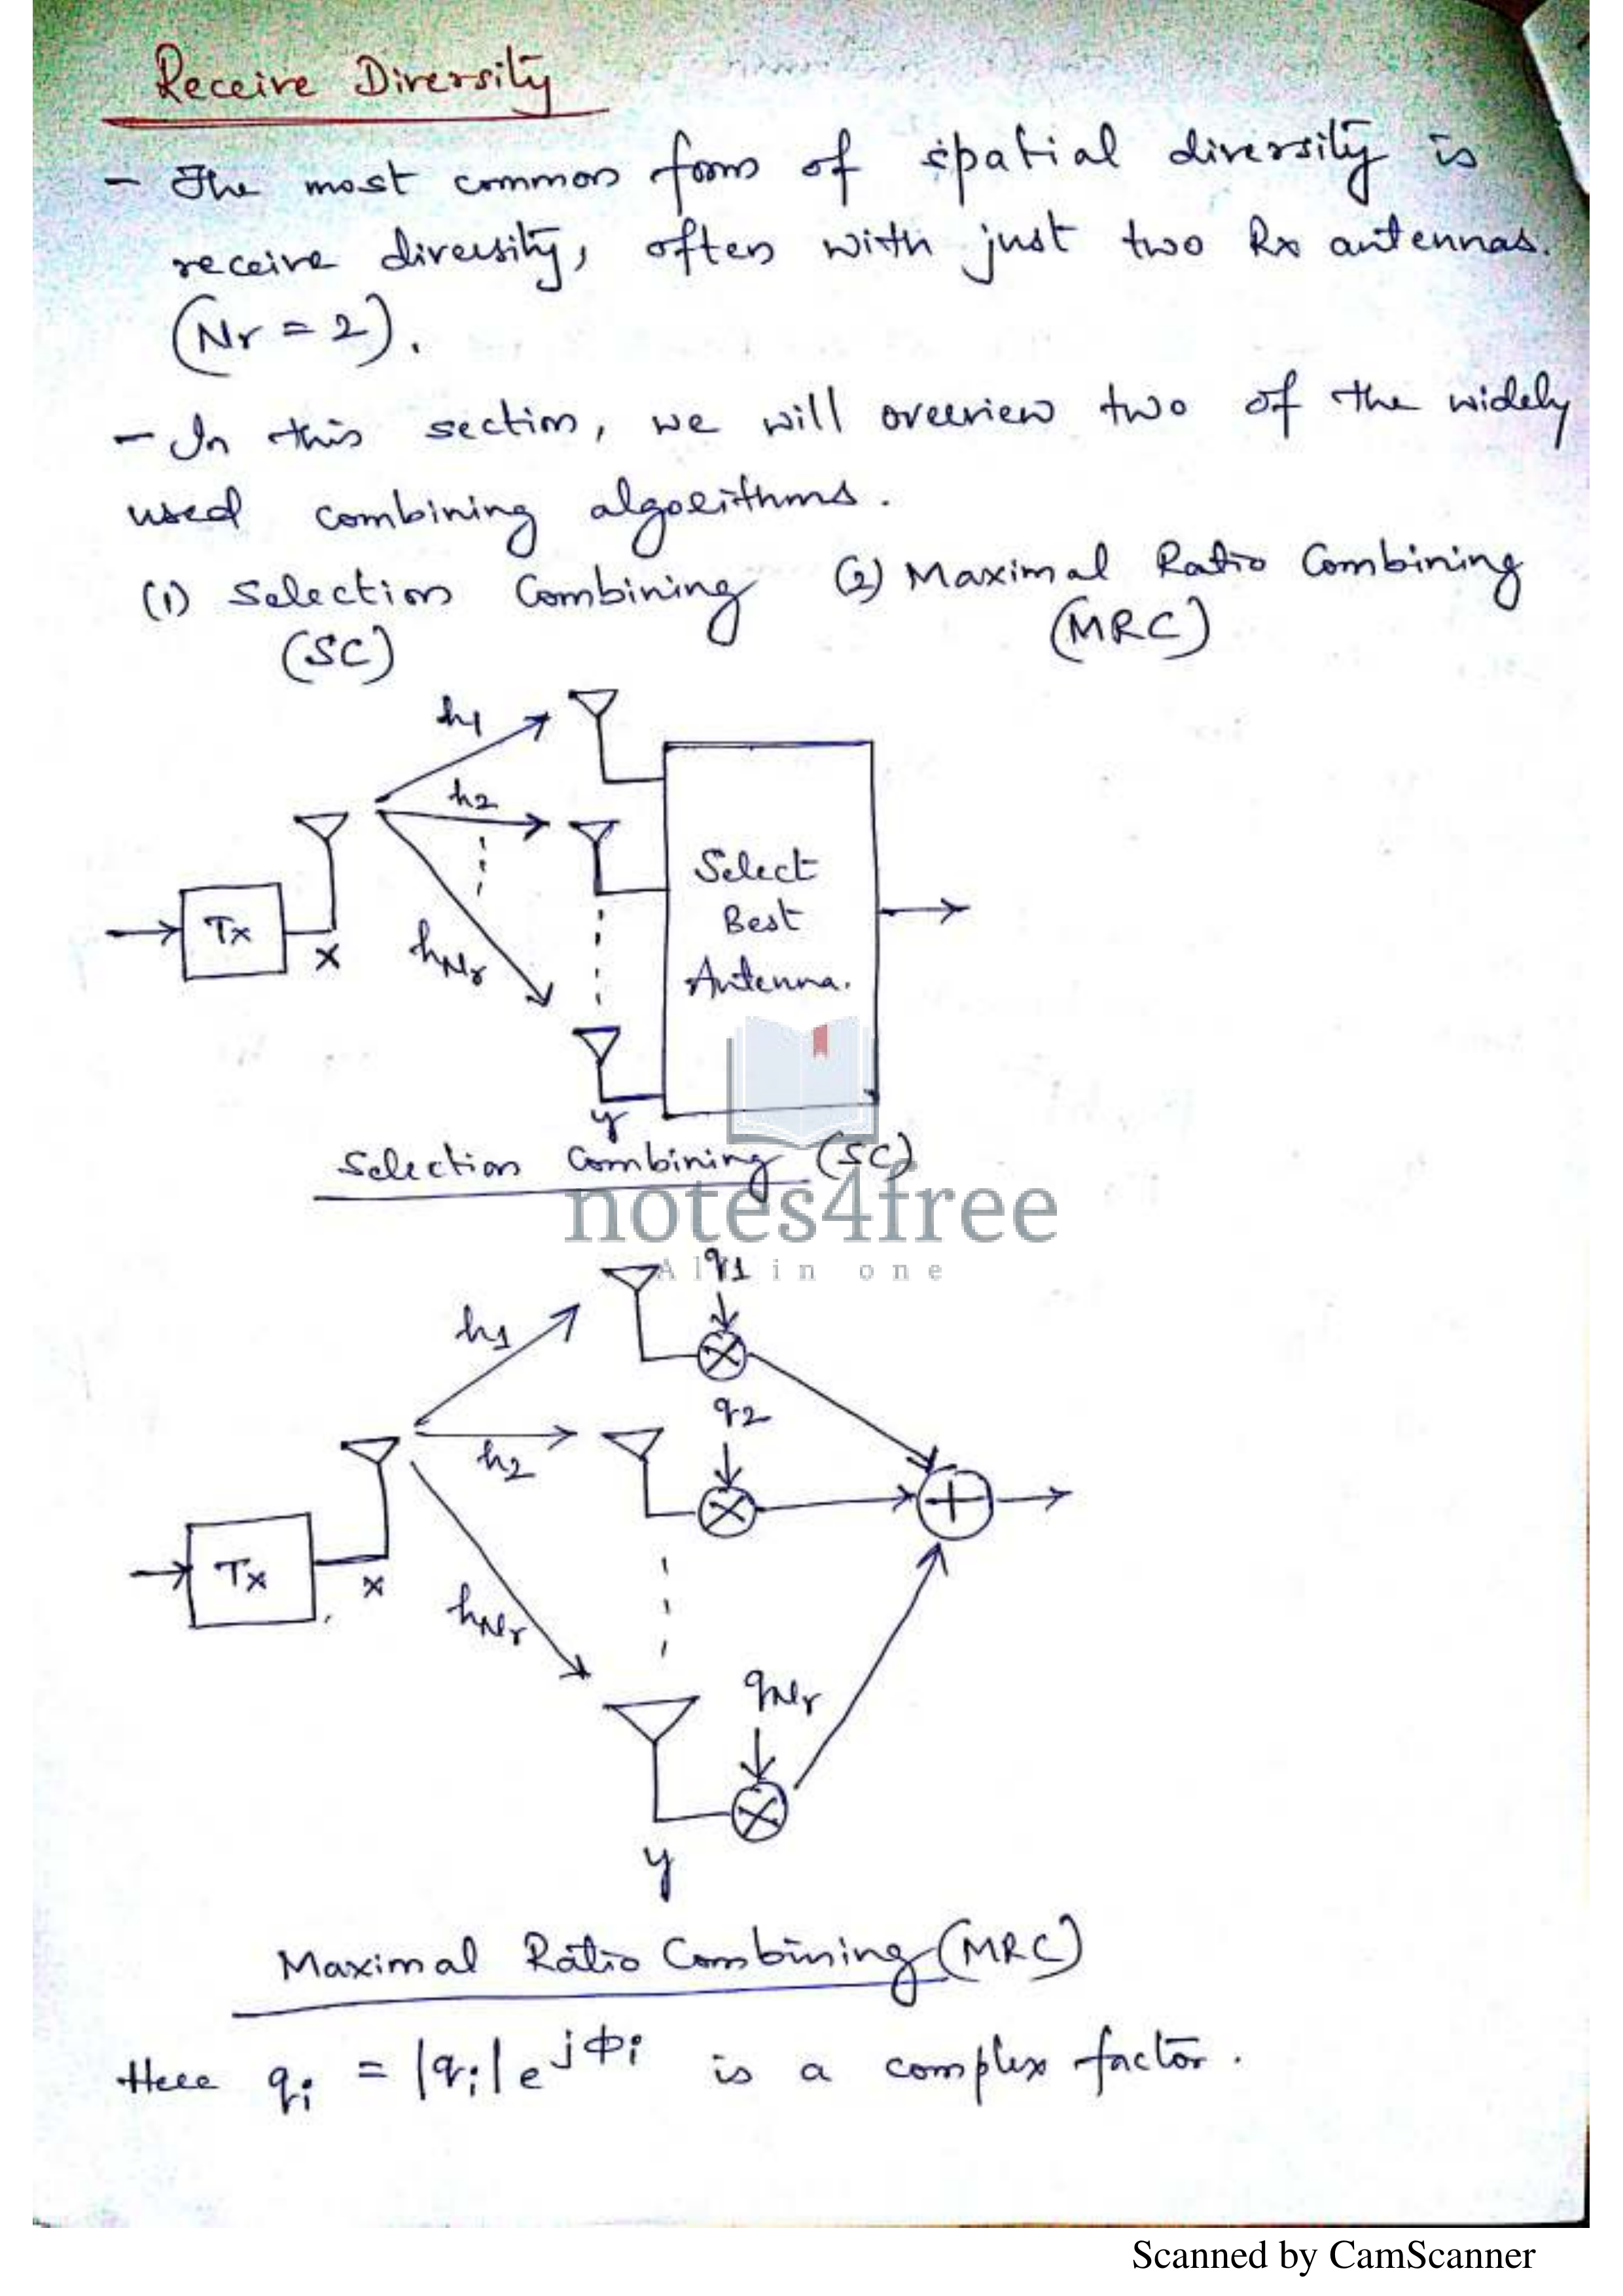 Receive Diversity
- The most common form of spatial diversity is
receive diversity, often with just two Rx antennas.
(Nr = 2).
- In this section, we will overview two of the widely
used combining algorithms.
(1) Selection Combining (2) Maximal Ratio Combining
(SC) (MRC)
h1
h2
Tx
x
hNr
Select
Best
Antenna.
y
Selection Combining (SC)
notes4free
All in one
q1
h1
q2
h2
Tx
x
hNr
qNr
y
Maximal Ratio Combining (MRC)
Here qi = |qi| e^jΦi is a complex factor.
Scanned by CamScanner